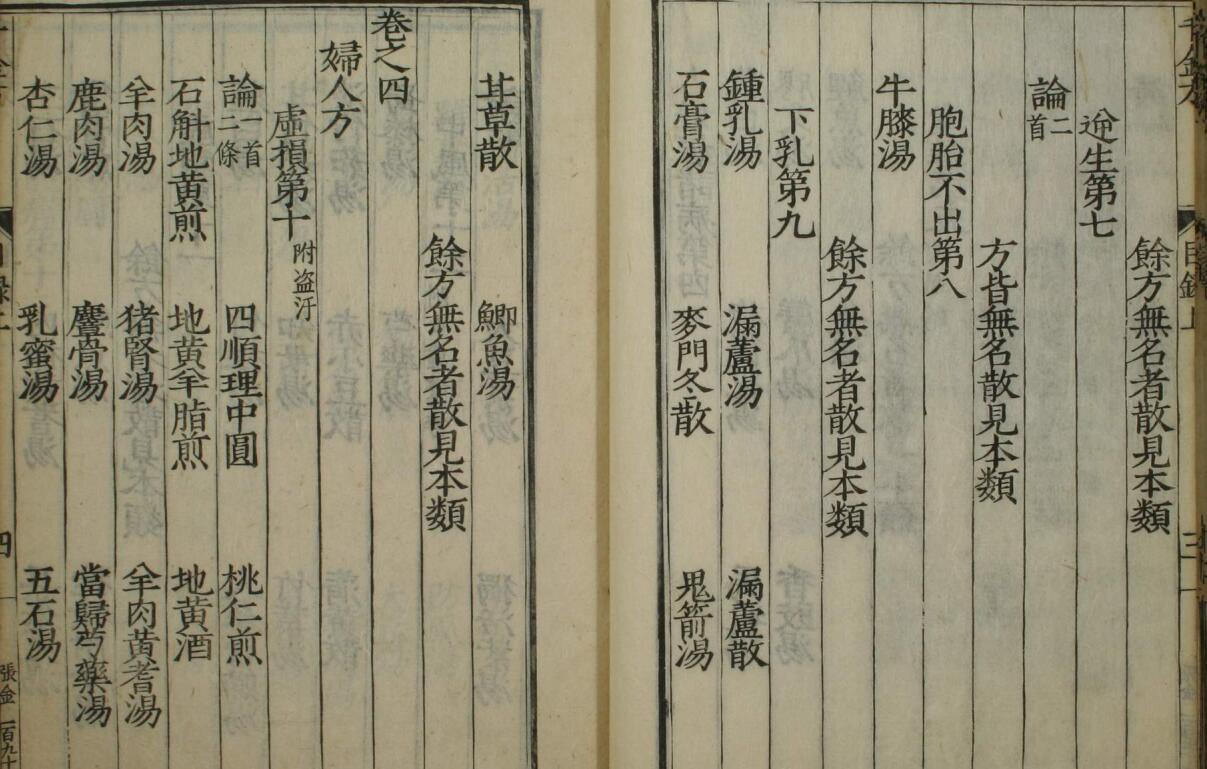 餘方無名者散見本類
逆生第七
論二首
方皆無名散見本類
胞胎不出第八
牛膝湯
餘方無名者散見本類
下乳第九
鍾乳湯 漏蘆湯 漏蘆散
石膏湯 麥門冬散 鬼箭湯
甘草散 鯽魚湯
餘方無名者散見本類
卷之四
婦人方
虛損第十 附盗汗
論一首二條 四順理中圓 桃仁煎
石斛地黃煎 地黃羊脂煎 地黃酒
羊肉湯 猪腎湯 羊肉黃耆湯
鹿肉湯 麞骨湯 當歸芍藥湯
杏仁湯 乳蜜湯 五石湯